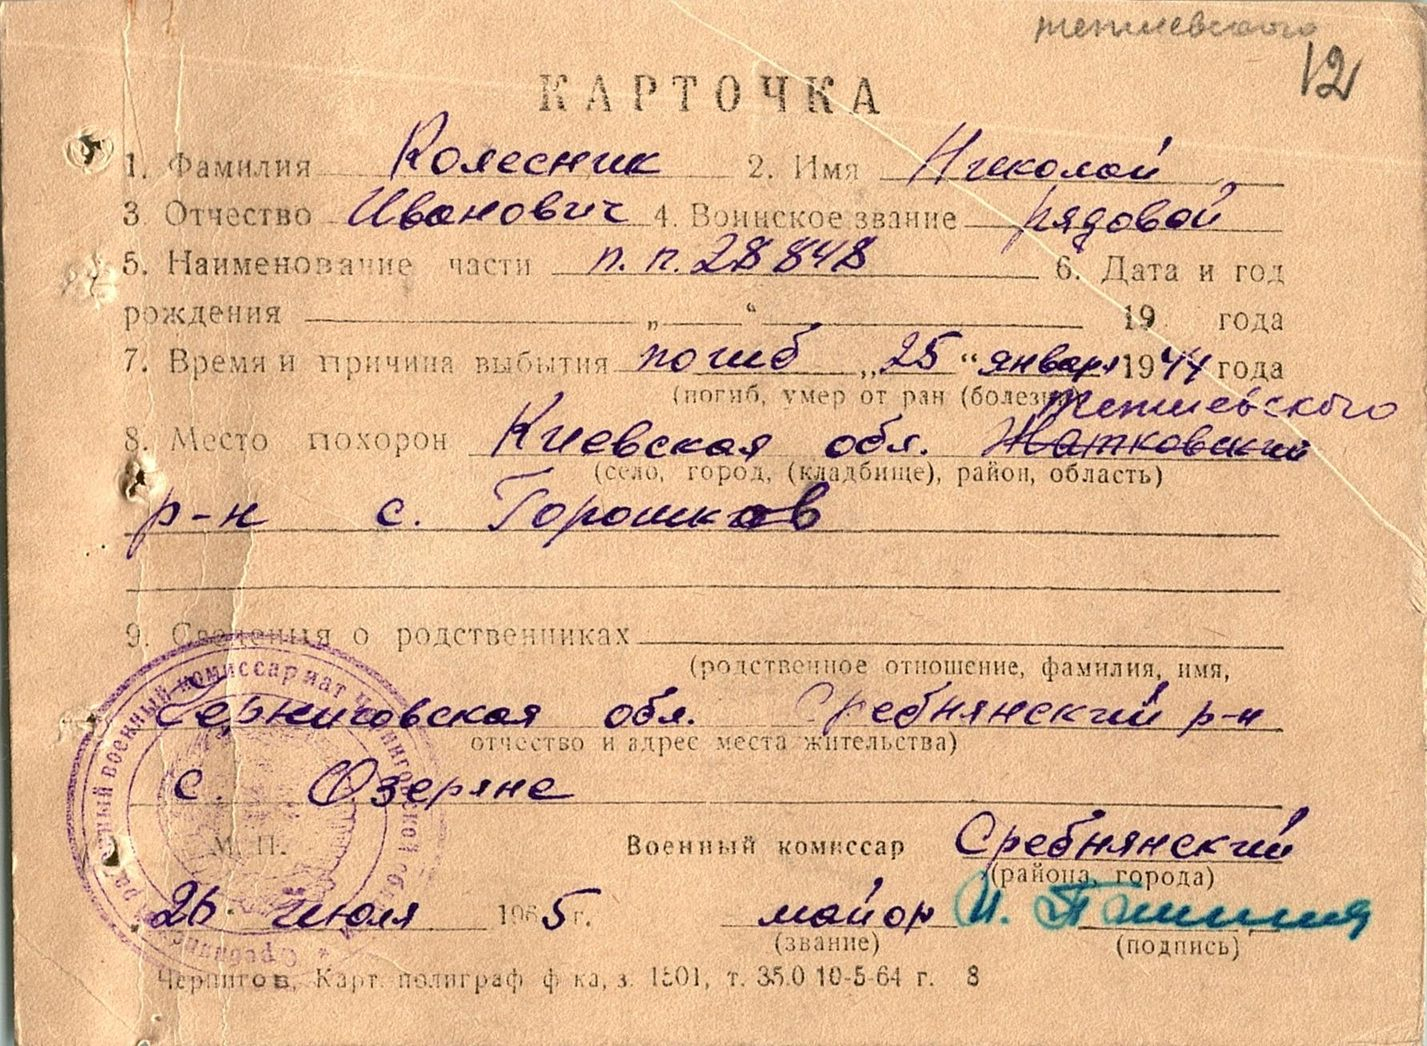 12
КАРТОЧКА
1. Фамилия Колесник 2. Имя Николай
3. Отчество Иванович 4. Воинское звание рядовой
5. Наименование части п.п. 28848 6. Дата и год
рождения „ “ 19 года
7. Время и причина выбытия погиб „25“ января 1944 года
(погиб, умер от ран (болезни)
8. Место похорон Киевская обл. Жатковский
(село, город, (кладбище), район, область)
р-н с. Горошков
9. Сведения о родственниках
(родственное отношение, фамилия, имя,
Черниговская обл. Сребнянский р-н
отчество и адрес места жительства)
с. Озеряне
М. П. Военный комиссар Сребнянский
(района, города)
26 июля 1965 г. майор
(звание) (подпись)
Чернигов, Карт. полиграф ф-ка, з. 1501, т. 35.0 10-5-64 г. 8